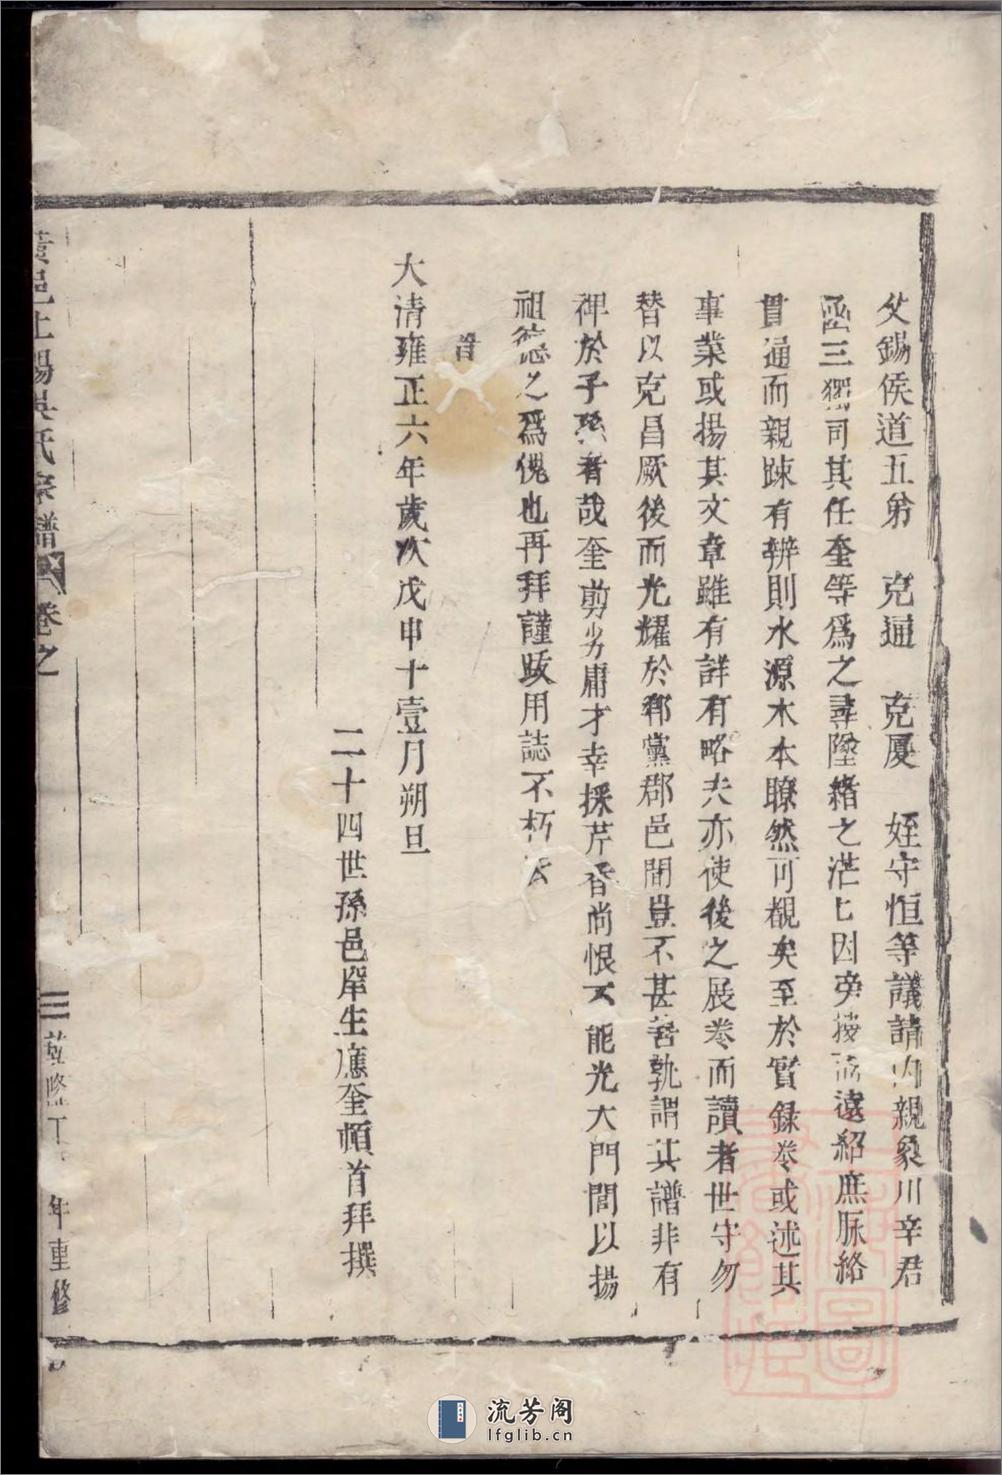 父錫侯道五弟　克通　克厦　姪守恒等議請內親象川辛君
函三獨司其任奎等爲之尋墜緒之茫匕因旁搜而遠紹庶脉絡
貫通而親踈有辨則水源木本瞭然可覩矣至於實録叅或述其
事業或揚其文章雖有詳有略夫亦使後之展卷而讀者世守勿
替以克昌厥後而光耀於鄉黨郡邑間豈不甚善孰謂其譜非有
裨於子孫者哉奎剪劣庸才幸採芹香尚恨不能光大門閭以揚
祖德之爲愧也再拜謹跋用誌不朽云
旹
大清雍正六年歲次戊申十壹月朔旦
二十四世孫邑庠生應奎頓首拜撰
黃邑上賜吳氏宗譜 卷之
三 乾隆 年重修
流芳阁
lfglib.cn